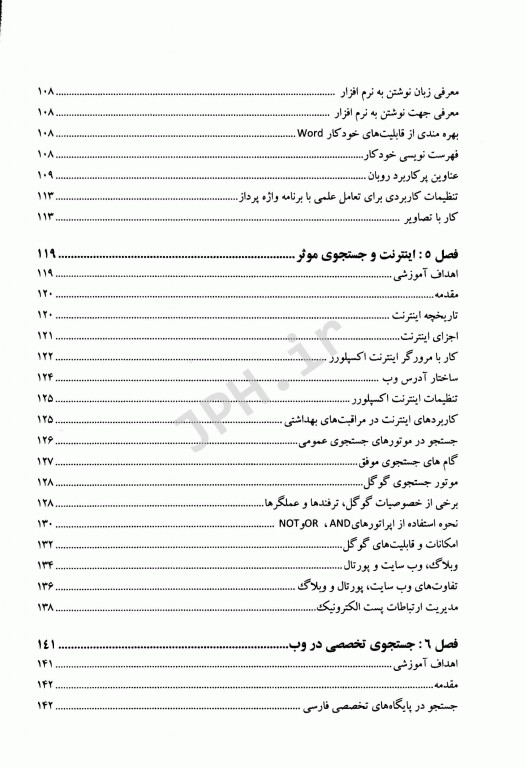 معرفی زبان نوشتن به نرم افزار ........ ۱۰۸
معرفی جهت نوشتن به نرم افزار ........ ۱۰۸
بهره مندی از قابلیت‌های خودکار Word ........ ۱۰۸
فهرست نویسی خودکار ........ ۱۰۸
عناوین پرکاربرد روبان ........ ۱۰۹
تنظیمات کاربردی برای تعامل علمی با برنامه واژه پرداز ........ ۱۱۳
کار با تصاویر ........ ۱۱۳
فصل ۵ : اینترنت و جستجوی موثر ........ ۱۱۹
اهداف آموزشی ........ ۱۱۹
مقدمه ........ ۱۲۰
تاریخچه اینترنت ........ ۱۲۰
اجزای اینترنت ........ ۱۲۱
کار با مرورگر اینترنت اکسپلورر ........ ۱۲۲
ساختار آدرس وب ........ ۱۲۴
تنظیمات اینترنت اکسپلورر ........ ۱۲۵
کاربردهای اینترنت در مراقبت‌های بهداشتی ........ ۱۲۵
جستجو در موتورهای جستجوی عمومی ........ ۱۲۶
گام های جستجوی موفق ........ ۱۲۷
موتور جستجوی گوگل ........ ۱۲۸
برخی از خصوصیات گوگل، ترفندها و عملگرها ........ ۱۲۸
نحوه استفاده از اپراتورهای AND، OR و NOT ........ ۱۳۰
امکانات و قابلیت‌های گوگل ........ ۱۳۲
وبلاگ، وب سایت و پورتال ........ ۱۳۴
تفاوت‌های وب سایت، پورتال و وبلاگ ........ ۱۳۶
مدیریت ارتباطات پست الکترونیک ........ ۱۳۸
فصل ۶ : جستجوی تخصصی در وب ........ ۱۴۱
اهداف آموزشی ........ ۱۴۱
مقدمه ........ ۱۴۲
جستجو در پایگاه‌های تخصصی فارسی ........ ۱۴۲
JPH.ir